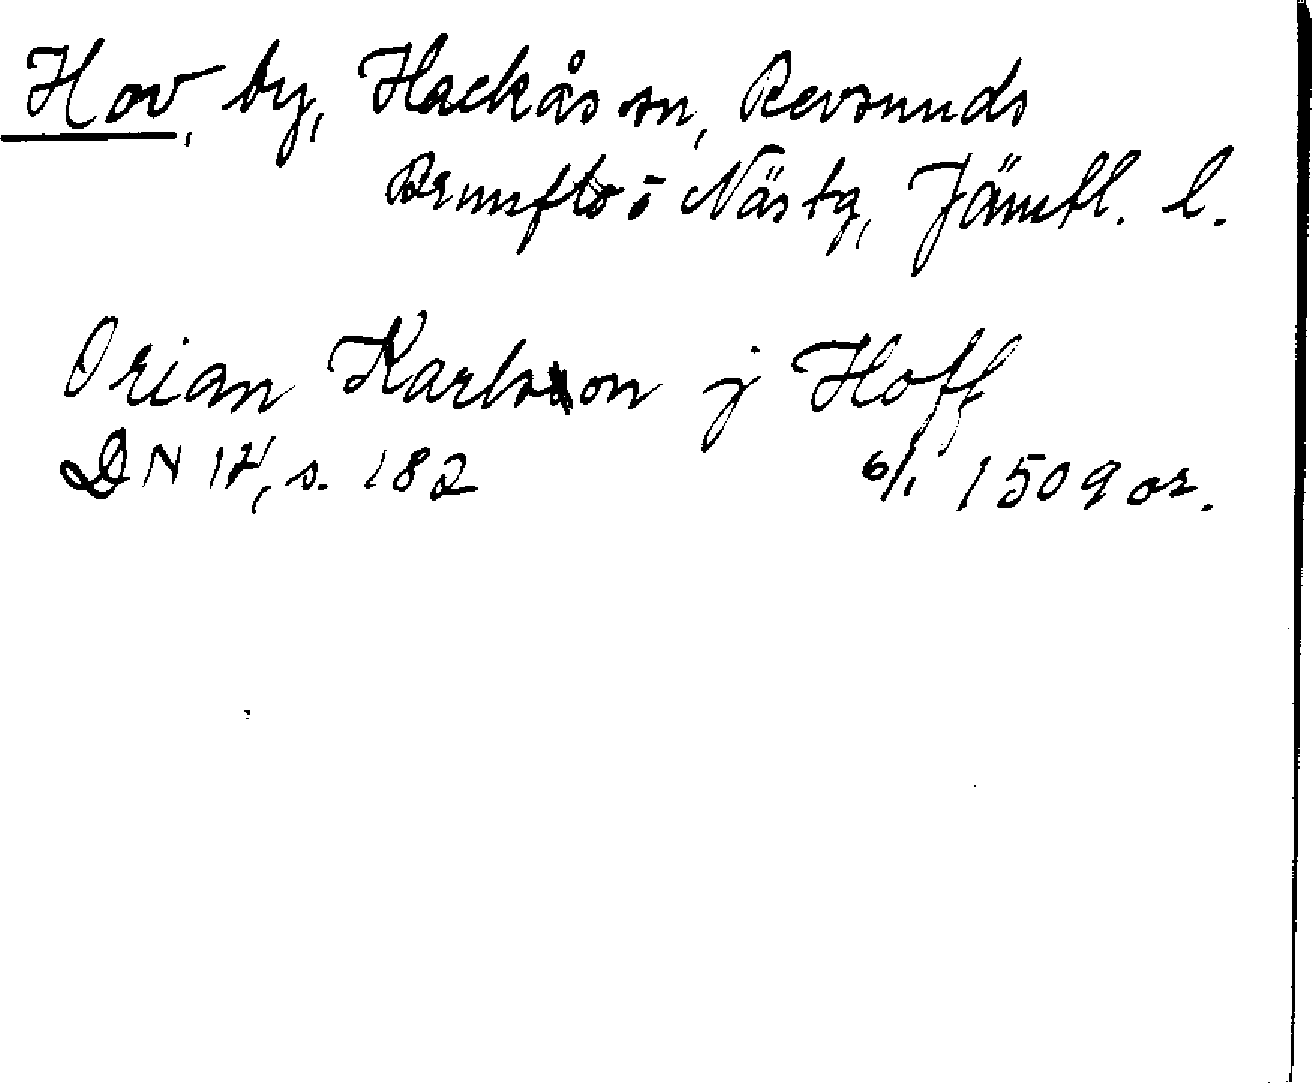 Hov, by, Hackås sn, Revsunds
Brunflo o Näs tg, Jämtl. l.
Örian Karlsson j Hoff
DN 14, s. 182 6/1 1509 or.